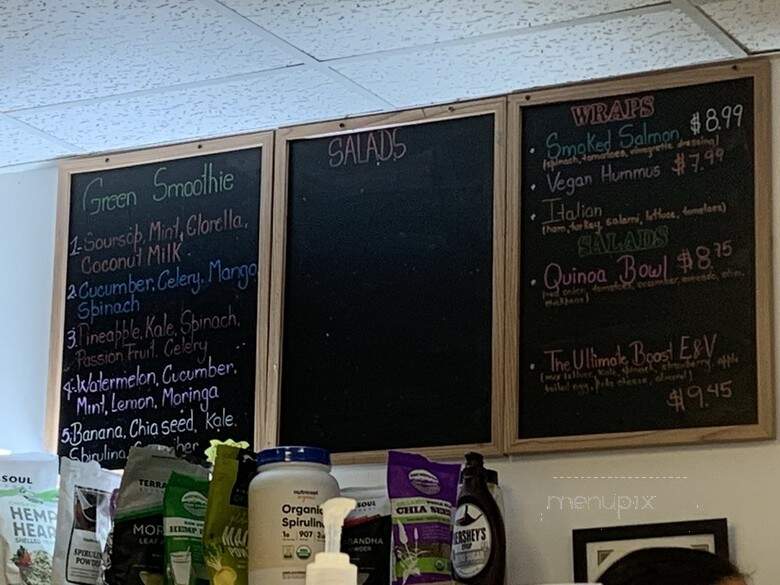 Green Smoothie
1. Soursop, Mint, Clorella,
Coconut Milk
2. Cucumber, Celery, Mango
Spinach
3. Pineapple, Kale, Spinach,
Passion Fruit, Celery
4. Watermelon, Cucumber,
Mint, Lemon, Moringa
5. Banana, Chia seed, Kale,
Spirulina,
SALADS
WRAPS
Smoked Salmon $8.99
(spinach, tomatoes, vinegrette dressing)
Vegan Hummus $7.99
Italian
(ham, turkey, salami, lettuce, tomatoes)
SALADS
Quinoa Bowl $8.75
red onion, tomatoes, cucumber, avocado,
chickpeas)
The Ultimate Boost E&V
kale, spinach, strawberry, apple
boiled egg, feta cheese, almond)
$9.45
SOUL
HEMP
HEAR
SPIRULI
POWD
TERRA
MOR
LEAF
HEMP
nutricost
organic
Organic
Spirulin
907
SOUL
ANDHA
CHIA SEE
HERSHEY'S
SYRUP
menupix